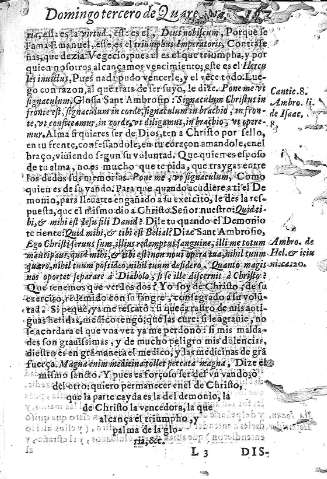 Domingo tercero de Quare
ria, esse es la virtud, esse es el, Deus nobiscum, Porque se
llama Emanuel, esse es, el triumphus Imperatoris, Contrase
ñas, que dezia Vegecio, pues assi es el que triumpha, y por
quien nosotros alcançamos vencimiento, este es el Hercu
les inuictus, Pues nadie pudo vencerle, y el vēce todo. Lue-
go con razon, al que trata de ser suyo, le dize. Pone me vt
signaculum, Glossa Sant Ambrosio: Signaculum Christus in
fronte est, signaculum in corde, signaculum in brachio, in fron
te, vt confiteamur, in corde, vt diligamus, in brachio, vt opere-
mur. Alma si quieres ser de Dios, ten a Christo por sello,
en tu frente, confessandole, en tu coraçon amandole, en el
braço, siruiendo segun su voluntad. Que quien es esposa
de tu alma, no es mucho que te pida, que traygas entre
los dedos sus memorias. Pone me, vt signaculum, Como
quien es de su vando. Para que quando acudiere a ti el De
monio, para lleuarte engañado a su exercito, le des la res-
puesta, que el mismo dio a Christo Señor nuestro: Quid ti-
bi, & mihi est Iesu fili Dauid? Dile tu quando el Demonio
te tiente: Quid mihi, & tibi est Belial? Dize Sant Ambrosio,
Ego Christi seruus sum, illius redemptus sanguine, illi me totum
mancipaui, quid mihi, & tibi est? non noui opera tua, nihil tuum
quæro, nihil tuum possideo, nihil tuum desidero. Quanto magis
nos oportet separare à Diabolo, si se ille discernit à Christo?
Que tenemos que ver los dos? Yo soy de Christo, de su
exercito, redemido con su sangre, consegrado a su volun-
tad. Si peque, ya me rescatò: si queda rastro de mis anti-
guas heridas, medico tengo, que las cure: si le agrauie, no
se acordara el que vna vez ya me perdonò: si mis malda-
des son grauissimas, y de mucho peligro mis dolencias,
diestro es en grā manera el medico, y las medicinas de grā
fuerça. Magna enim medicina tollet peccata magna, Dize el
mismo sancto. Y pues es forçoso ser del vn vando, o
del otro; quiero permanecer en el de Christo,
que la parte cayda es la del demonio, la
de Christo la vencedora, la que
alcança el triumpho, y
palma de la glo-
ria, &c.
Cantic. 8.
Ambro. li.
de Isaac,
8.
Ambro. de
Hel. & ieiu
nio. ca. 20.
L 3 DIS-